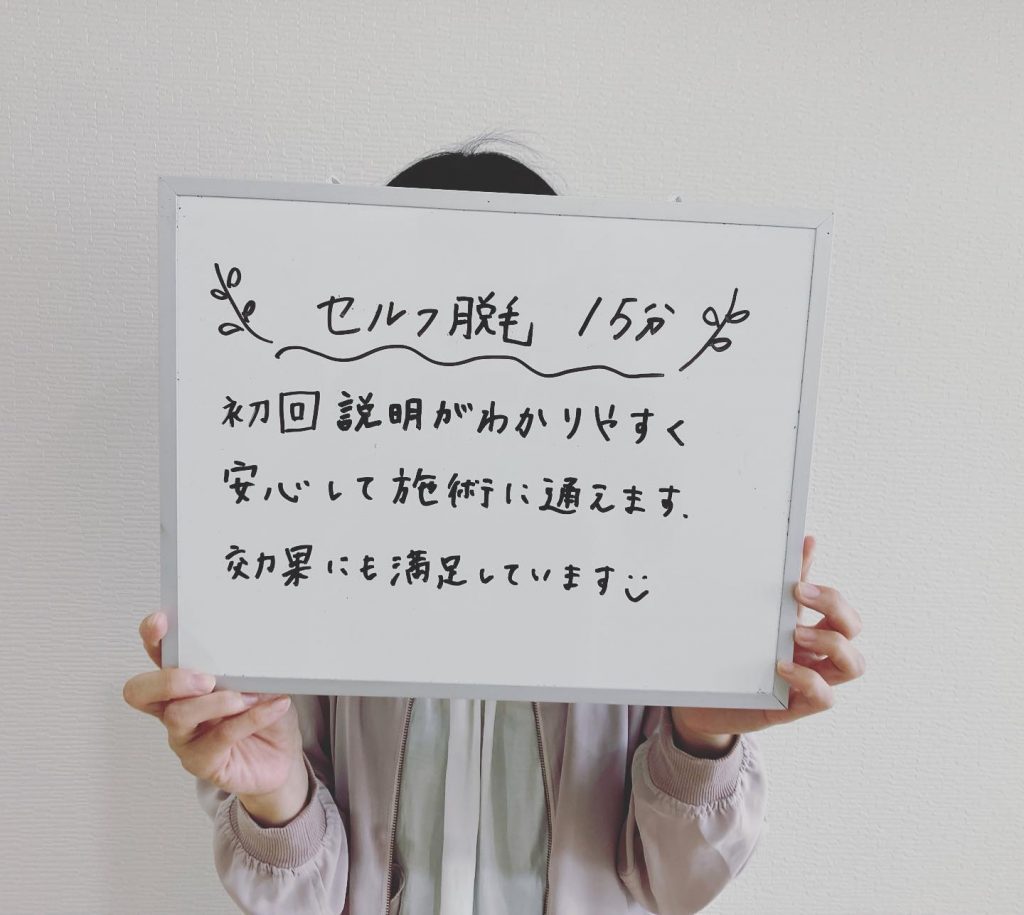 セルフ脱毛 15分
初回説明がわかりやすく
安心して施術に通えます.
効果にも満足しています